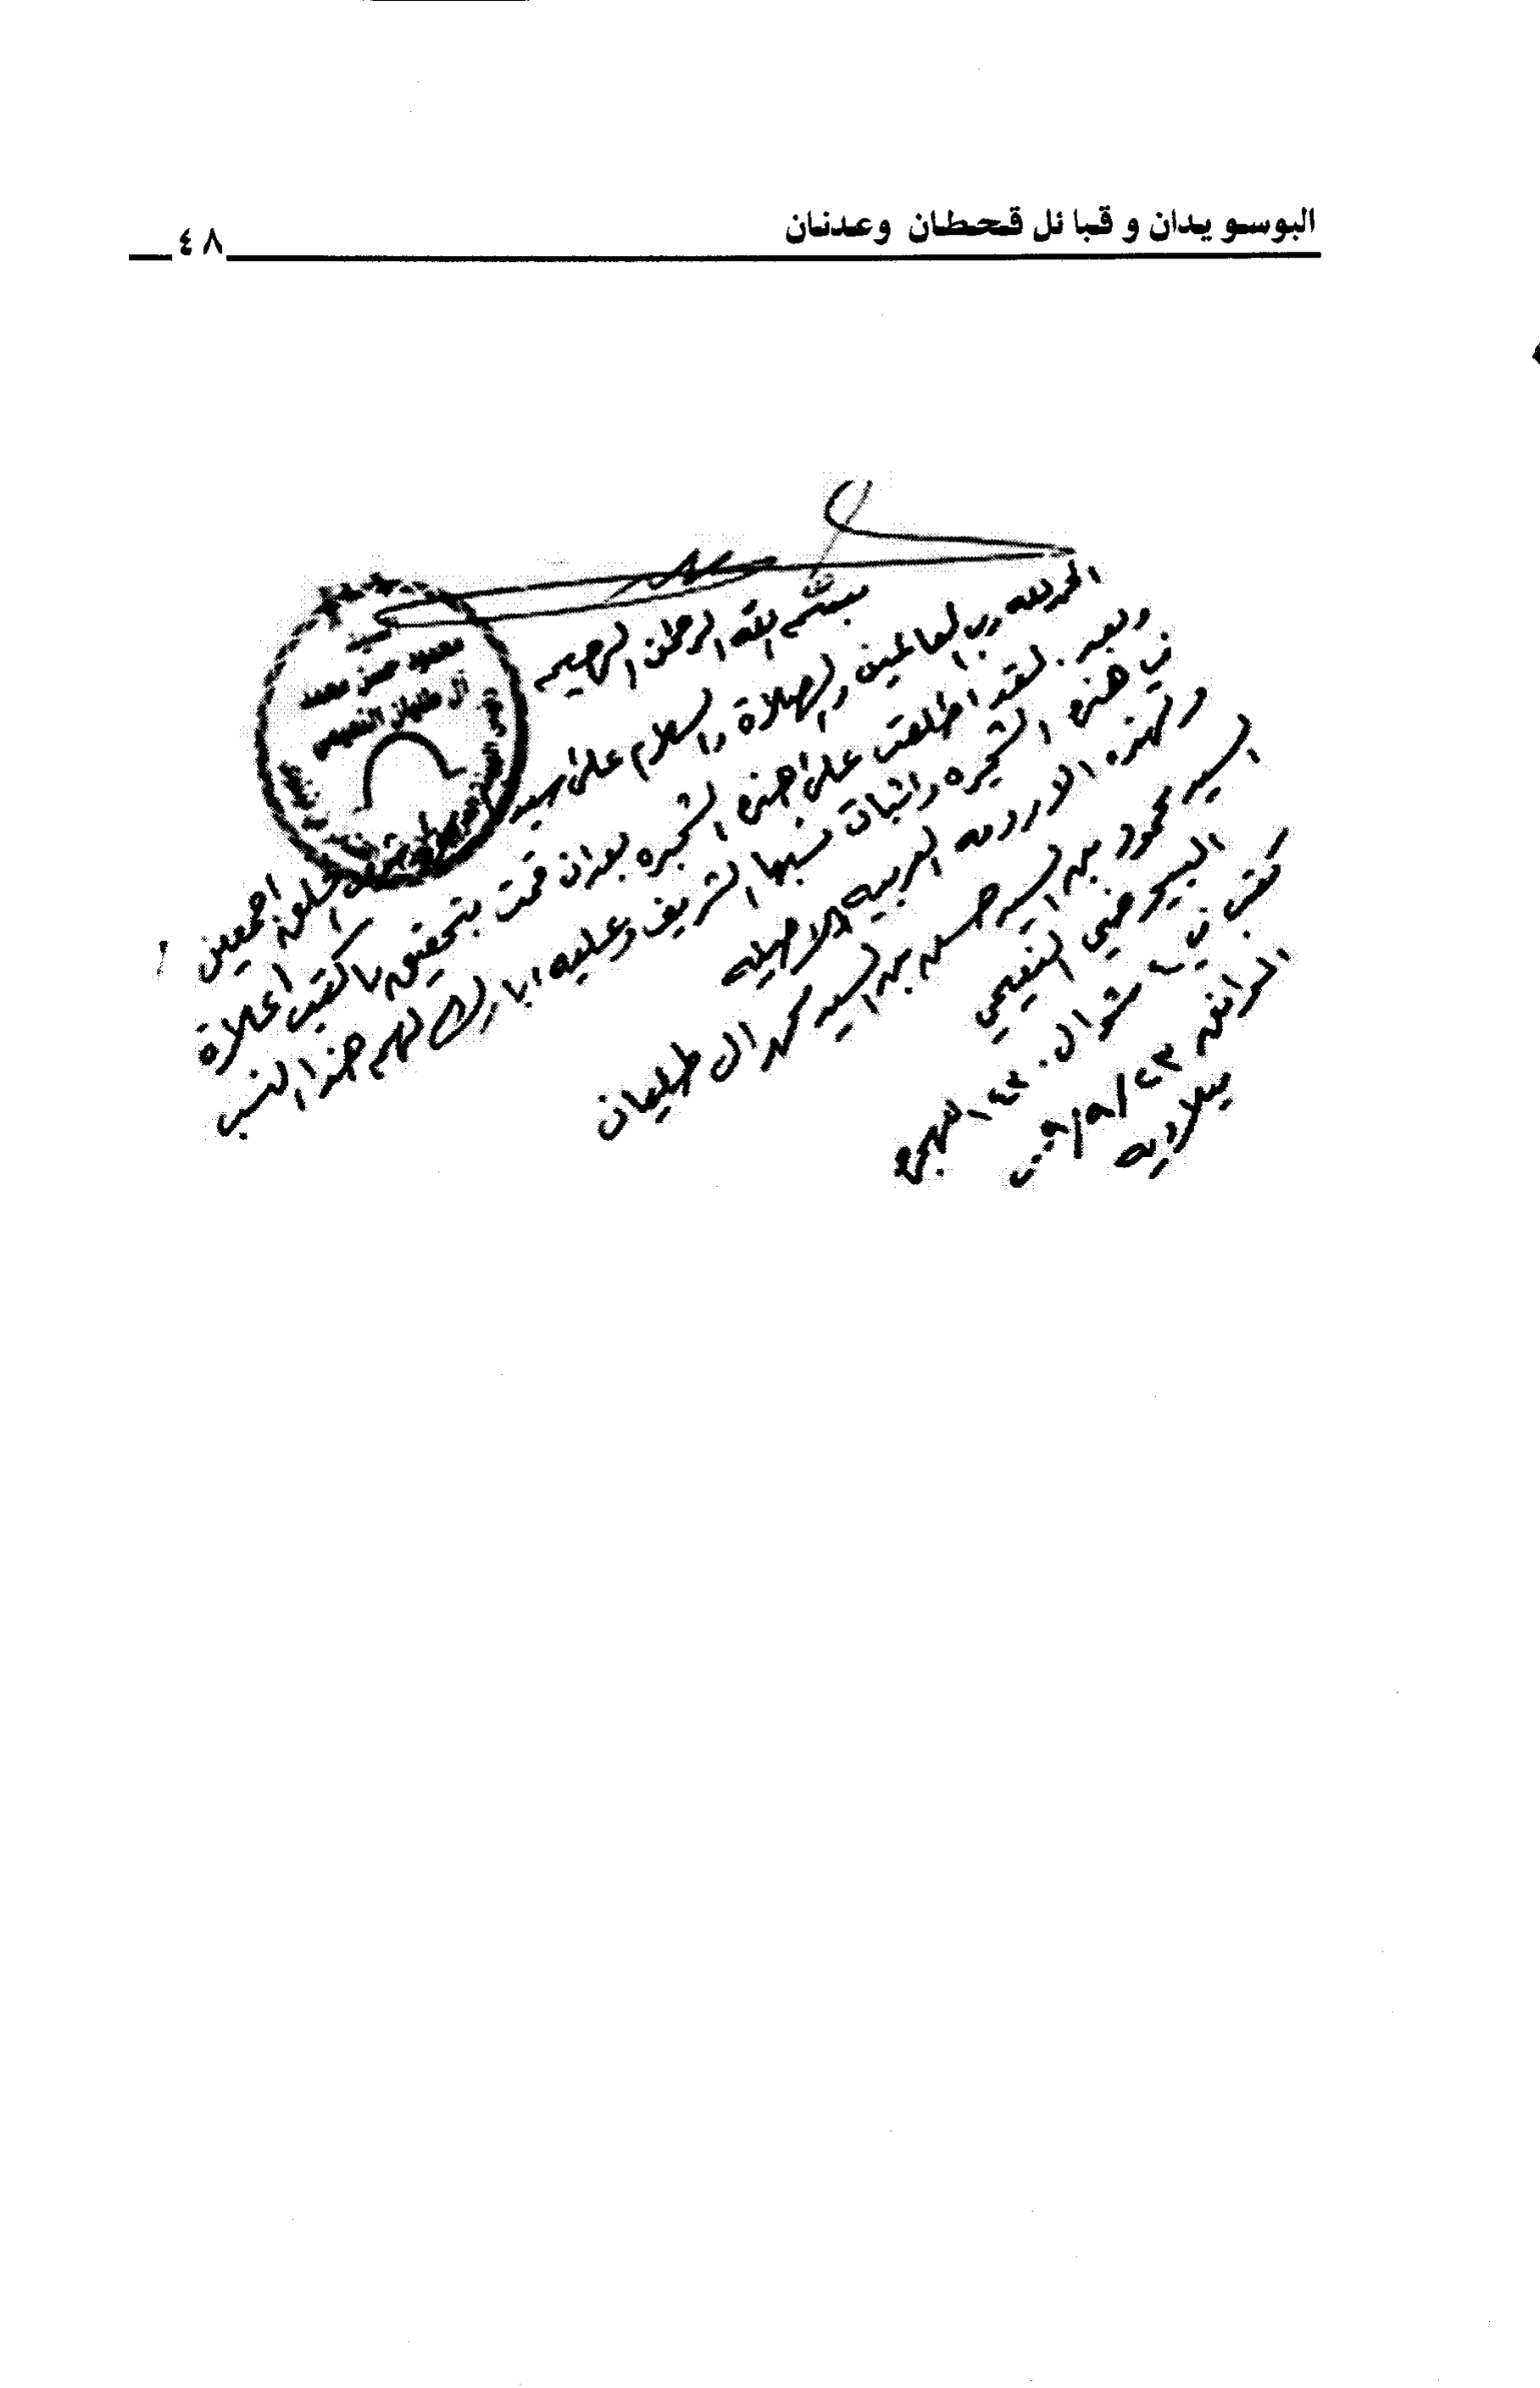 البوسويدان وقبائل قحطان وعدنان
٤٨
بسم الله الرحمن الرحيم
الحمد لله رب العالمين والصلاة والسلام على سيد الخلق اجمعين
وبعد. لقد اطلعت على هذه الشجره بعد ان قمت بتحقيق ما كتب اعلاة
في هذه الشجره واثبات نسبها الشريف وعليه ابارك لهم هذا النسب
ولهذه الارومه العربيه الاصيله
السيد محمود بن السيد حسن بن السيد محمد ال طليمان
السيد رضي النعيمي
كتب في شوال ١٤٣٠ لهجره
الموافق ٢٣/٩/٢٠٠٩
ميلاديه
السيد
محمود حسن محمد
آل طليمان النعيمي